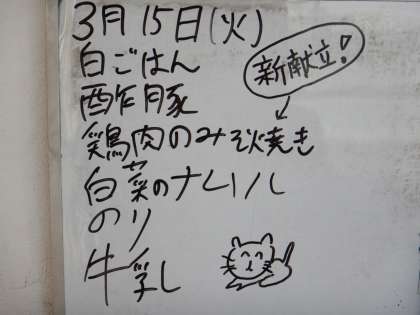 3月15日(火)
白ごはん
酢豚
新献立!
鶏肉のみそ焼き
白菜のナムル
のり
牛乳